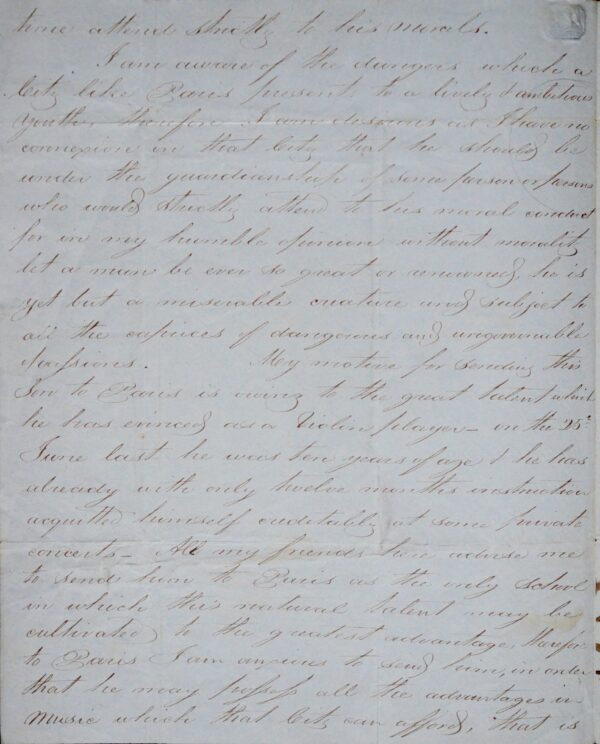 time attend strictly to his morals.
I am aware of the dangers which a
City like Paris presents to a lively & ambitious
youth, therefore I am desirous as I have no
connexion in that City that he should be
under the guardianship of some person or persons
who would strictly attend to his moral conduct
for in my humble opinion without morality
let a man be ever so great or renowned, he is
yet but a miserable creature and subject to
all the caprices of dangerous and ungovernable
Passions. My motive for sending this
Son to Paris is owing to the great talent which
he has evinced as a Violin player – on the 25th
June last he was ten years of age & he has
already with only twelve months instruction
acquitted himself creditably at some private
concerts – All my friends here advise me
to send him to Paris as the only school
in which this natural talent may be
cultivated to the greatest advantage, therefore
to Paris I am anxious to send him, in order
that he may possess all the advantages in
Music which that City can afford, that is